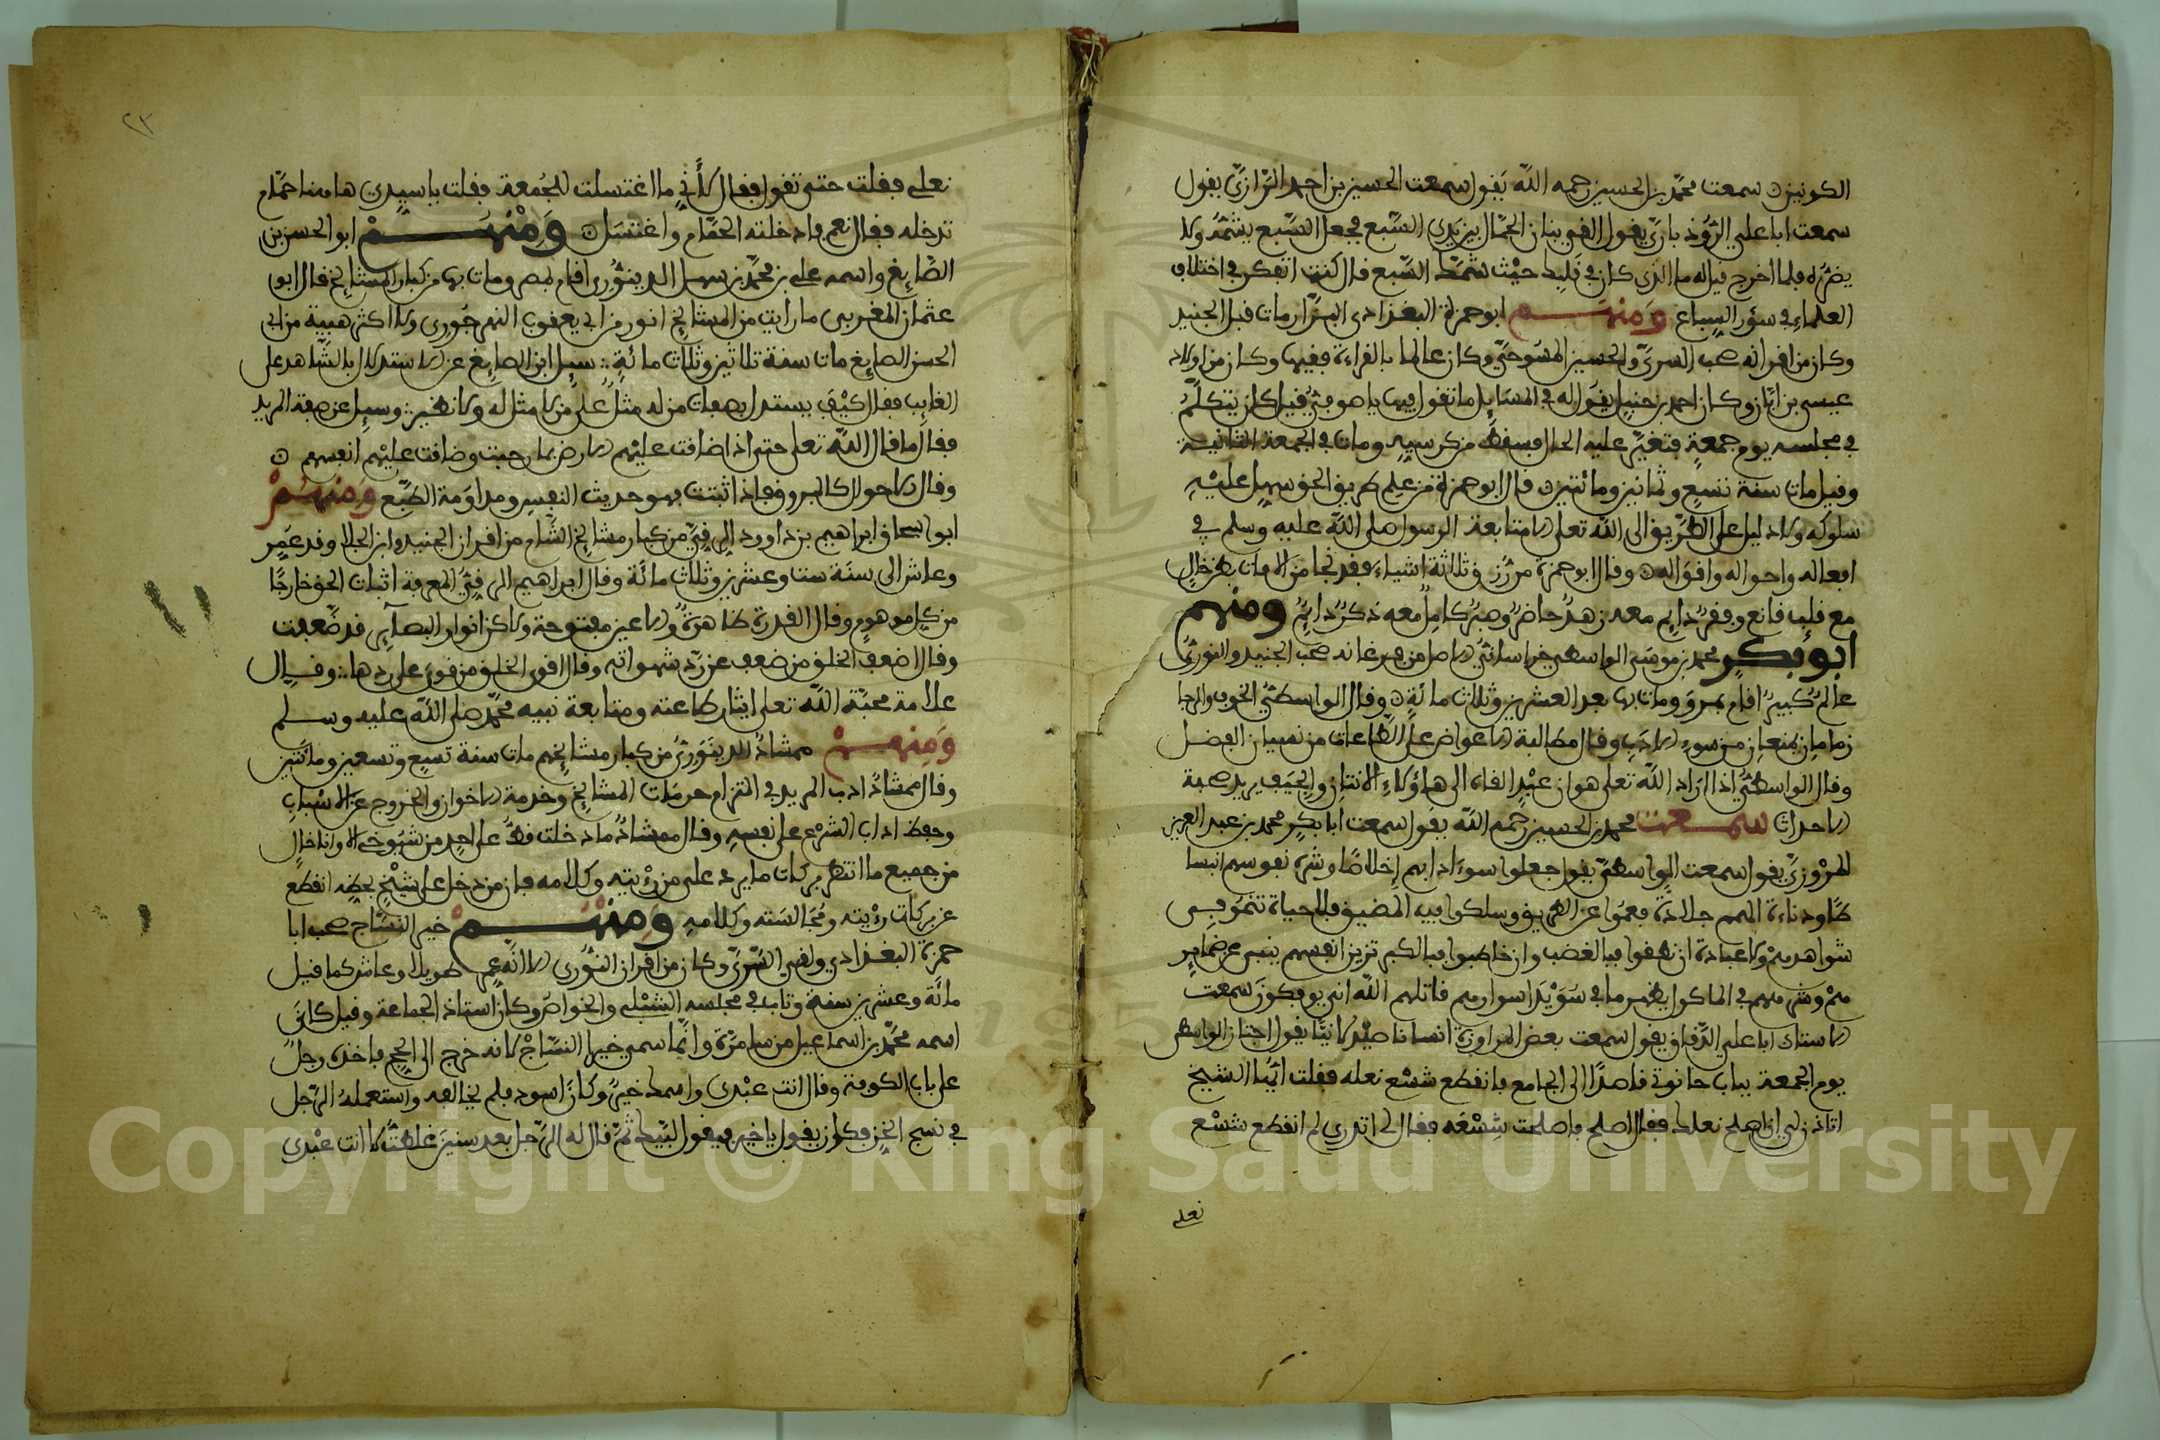 الكونين سمعت محمد بن الحسين رحمه الله يقول سمعت الحسين بن احمد الرازي يقول
سمعت ابا علي الروذباري يقول القي بنان الحمال بين يدي السبع فجعل السبع يشمه ولا
يضره فلما اخرج قيل له ما الذي كان في قلبك حيث شمك السبع قال كنت اتفكر في اختلاف
العلماء في سؤر السباع ومنهم ابو حمزة البغدادي البزار مات قبل الجنيد
وكان من اقرانه صحب السري والحسين المسوحي وكان عالما بالقراءة فقيها وكان من اولاد
عيسى بن ابان وكان احمد بن حنبل يقول له في المسايل ما تقول فيها يا صوفي قيل كان يتكلم
في مجلسه يوم جمعة فتغير عليه الحال فسقط من كرسيه ومات في الجمعة الثانية
وقيل مات سنة تسع وثمانين ومائتين قال ابو حمزة من علم طريق الحق سهل عليه
سلوكه ولا دليل على الطريق الى الله تعلى الا متابعة الرسول صلى الله عليه وسلم في
افعاله واحواله واقواله وقال ابو حمزة من رزق ثلاثة اشياء فقد نجا من الافات بطن خال
مع قلب قانع وفقر دايم معه زهد حاضر وصبر كامل معه ذكر دايم ومنهم
ابو بكر محمد بن موسى الواسطي خراساني الاصل من فرغانه صحب الجنيد والنوري
عالم كبير اقام بمرو ومات بها بعد العشرين وثلاث مائة وقال الواسطي الخوف والرجا
زمامان يمنعان من سوء الادب وقال مطالبة الاعواض على الطاعات من نسيان الفضل
وقال الواسطي اذا اراد الله تعلى هوان عبد القاه الى هاؤلاء الانتان والجيف يريد صحبة
الاحداث سمعت محمد بن الحسين رحمه الله يقول سمعت ابا بكر محمد بن عبد العزيز
المروزي يقول سمعت الواسطي يقول جعلوا سوء ادابهم اخلاصا وشره نفوسهم انبسا
طا ودناءة الهمم جلادة فعموا عن الطريق وسلكوا فيه المضيق فلا حياة تنمو في
شواهدهم ولا عبادة ان نطقوا فبالغضب وان خاطبوا فبالكبر توثب انفسهم ينبي عن ضماير
هم وشرههم في الماكول يظهر ما في سويداء اسرارهم قاتلهم الله انى يوفكون سمعت
الاستاذ ابا علي الدقاق يقول سمعت بعض المراوزة انسانا صيدلانيا يقول اجتاز الواسطي
يوم الجمعة بباب حانوتي قاصدا الى الجامع فانقطع شسع نعله فقلت ايها الشيخ
اتاذن لي ان اصلح نعلك فقال اصلح فاصلحت شسعه فقال لي اتدري لم انقطع شسع
نعلي
٢٣
نعلي فقلت حتى تقول فقال لاني ما اغتسلت للجمعة فقلت يا سيدي هاهنا حمام
تدخله فقال نعم فادخلته الحمام واغتسل ومنهم ابو الحسن بن
الصايغ واسمه علي بن محمد بن سهل الدينوري اقام بمصر ومات بها من كبار المشايخ قال ابو
عثمان المغربي ما رأيت من المشايخ انور من ابي يعقوب النهرجوري ولا اكثر هيبة من ابي
الحسن الصايغ مات سنة ثلاثين وثلاث مائة سيل ابن الصايغ عن الاستدلال بالشاهد على
الغايب فقال كيف يستدل بصفات من له مثل على من لا مثل له ولا نظير وسيل عن صفة المريد
فقال ما قال الله تعلى حتى اذا ضاقت عليهم الارض بما رحبت وضاقت عليهم انفسهم
وقال الاحوال كالبروق فاذا ثبتت فهو حديث النفس ومداومة الطبع ومنهم
ابو اسحاق ابراهيم بن داوود الرقي من كبار مشايخ الشام من اقران الجنيد وابن الجلا وقد عمر
وعاش الى سنة ست وعشرين وثلاث مائة وقال ابراهيم الرقي المعرفة اثبات الحق خارجا
من كل موهوم وقال القدرة ظاهرة والاعين مفتوحة ولاكن انوار البصاير قد ضعفت
وقال اضعف الخلق من ضعف عن رد شهواته وقال اقوى الخلق من قوي على ردها وقال
علامة محبة الله تعلى ايثار طاعته ومتابعة نبيه محمد صلى الله عليه وسلم
ومنهم ممشاذ الدينوري من كبار مشايخهم مات سنة تسع وتسعين ومائتين
وقال ممشاذ ادب المريد في التزام حرمات المشايخ وخدمة الاخوان والخروج عن الاسباب
وحفظ اداب الشرع على نفسه وقال ممشاذ ما دخلت قط على احد من شيوخي الا وانا خال
من جميع ما لي انتظر بركات ما يرد علي من رؤيته وكلامه فان من دخل على شيخ بحظه انقطع
عن بركات رؤيته ومجالسته وكلامه ومنهم خير النساج صحب ابا
حمزة البغدادي ولقي السري وكان من اقران النوري الا انه عمر طويلا وعاش كما قيل
مائة وعشرين سنة وتاب في مجلسه الشبلي والخواص وكان استاذ الجماعة وقيل كان
اسمه محمد بن اسماعيل من سامرة وانما سمي خير النساج لانه خرج الى الحج فاخذه رجل
على باب الكوفة وقال انت عبدي واسمك خير وكان اسود فلم يخالفه واستعمله الرجل
في نسج الخز فكان يقول يا خير فيقول لبيك ثم قال له الرجل بعد سنين غلطت لا انت عبدي
Copyright © King Saud University